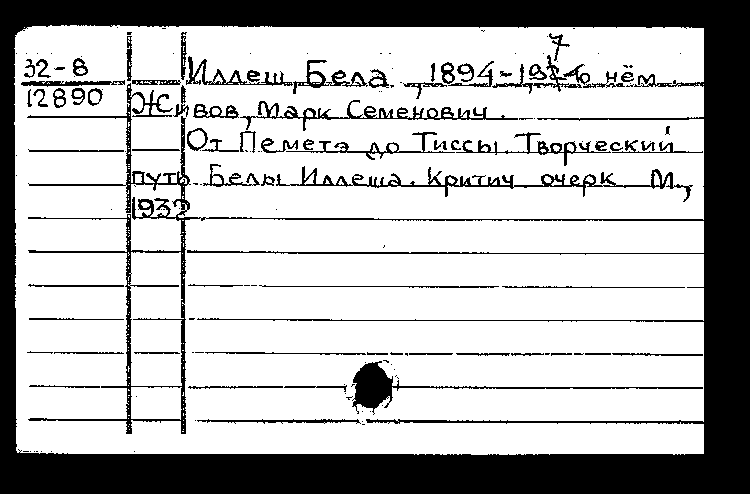 7
32-8 Иллеш, Бела, 1894-19 о нём.
12890 Живов, Марк Семенович.
От Пеметэ до Тиссы. Творческий
путь Белы Иллеша. Критич очерк М.,
1932